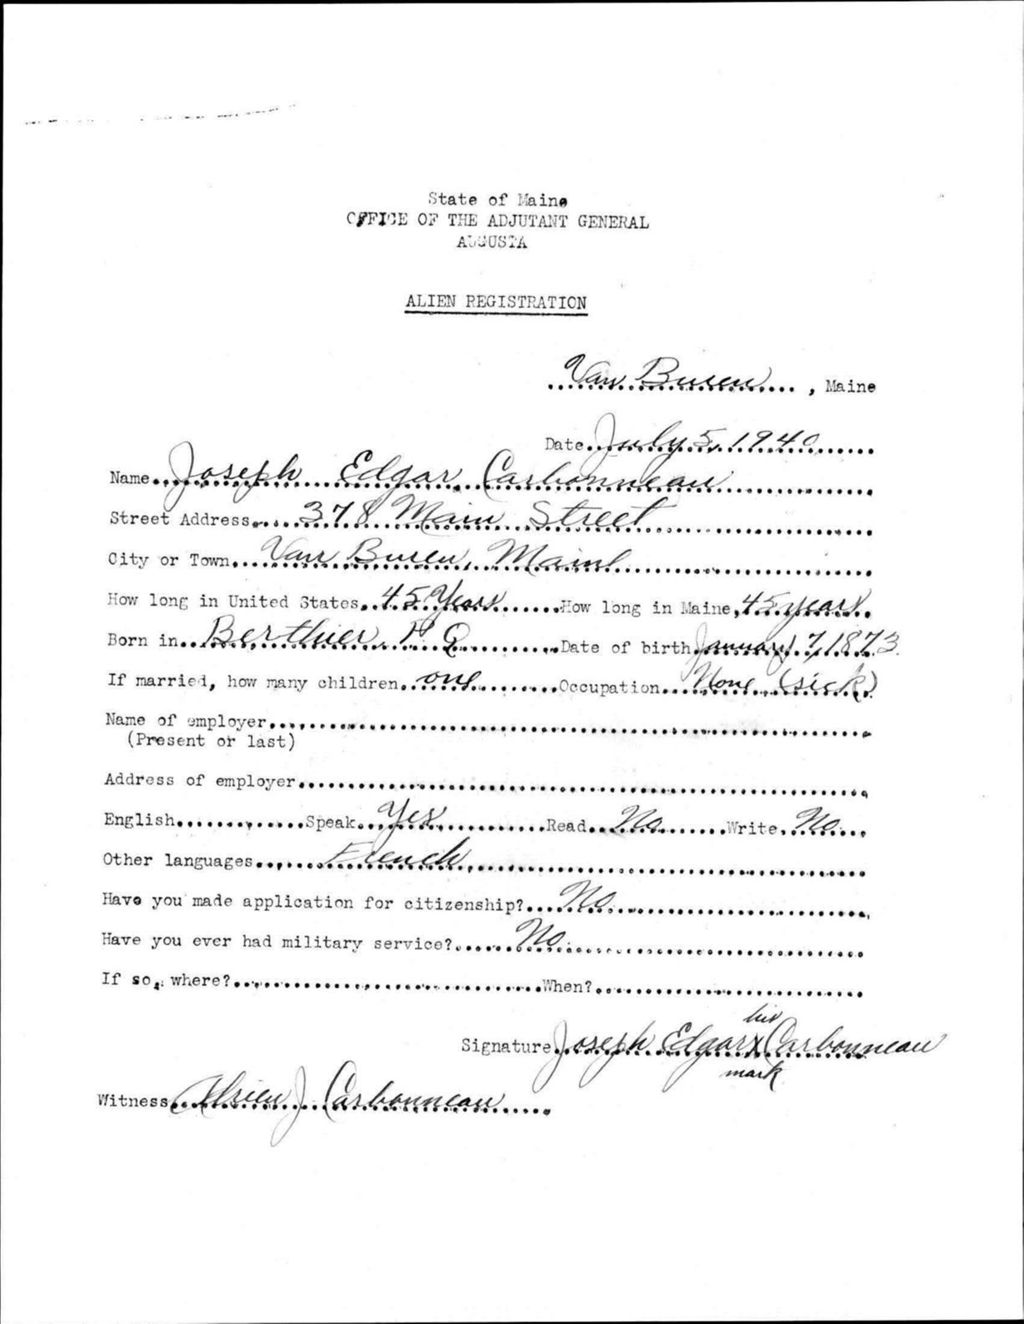 State of Maine
OFFICE OF THE ADJUTANT GENERAL
AUGUSTA
ALIEN REGISTRATION
Van Buren, Maine
Date July 5, 1940
Name Joseph Edgar Carbonneau
Street Address 378 Main Street
City or Town Van Buren, Maine
How long in United States 45 Years How long in Maine 45 years
Born in Berthier, P Q Date of birth January 7, 1873
If married, how many children one Occupation None (sick)
Name of employer
(Present or last)
Address of employer
English Speak Yes Read No Write No
Other languages French
Have you made application for citizenship? No
Have you ever had military service? No
If so, where? When?
his
Signature Joseph Edgar x Carbonneau
mark
Witness J Carbonneau